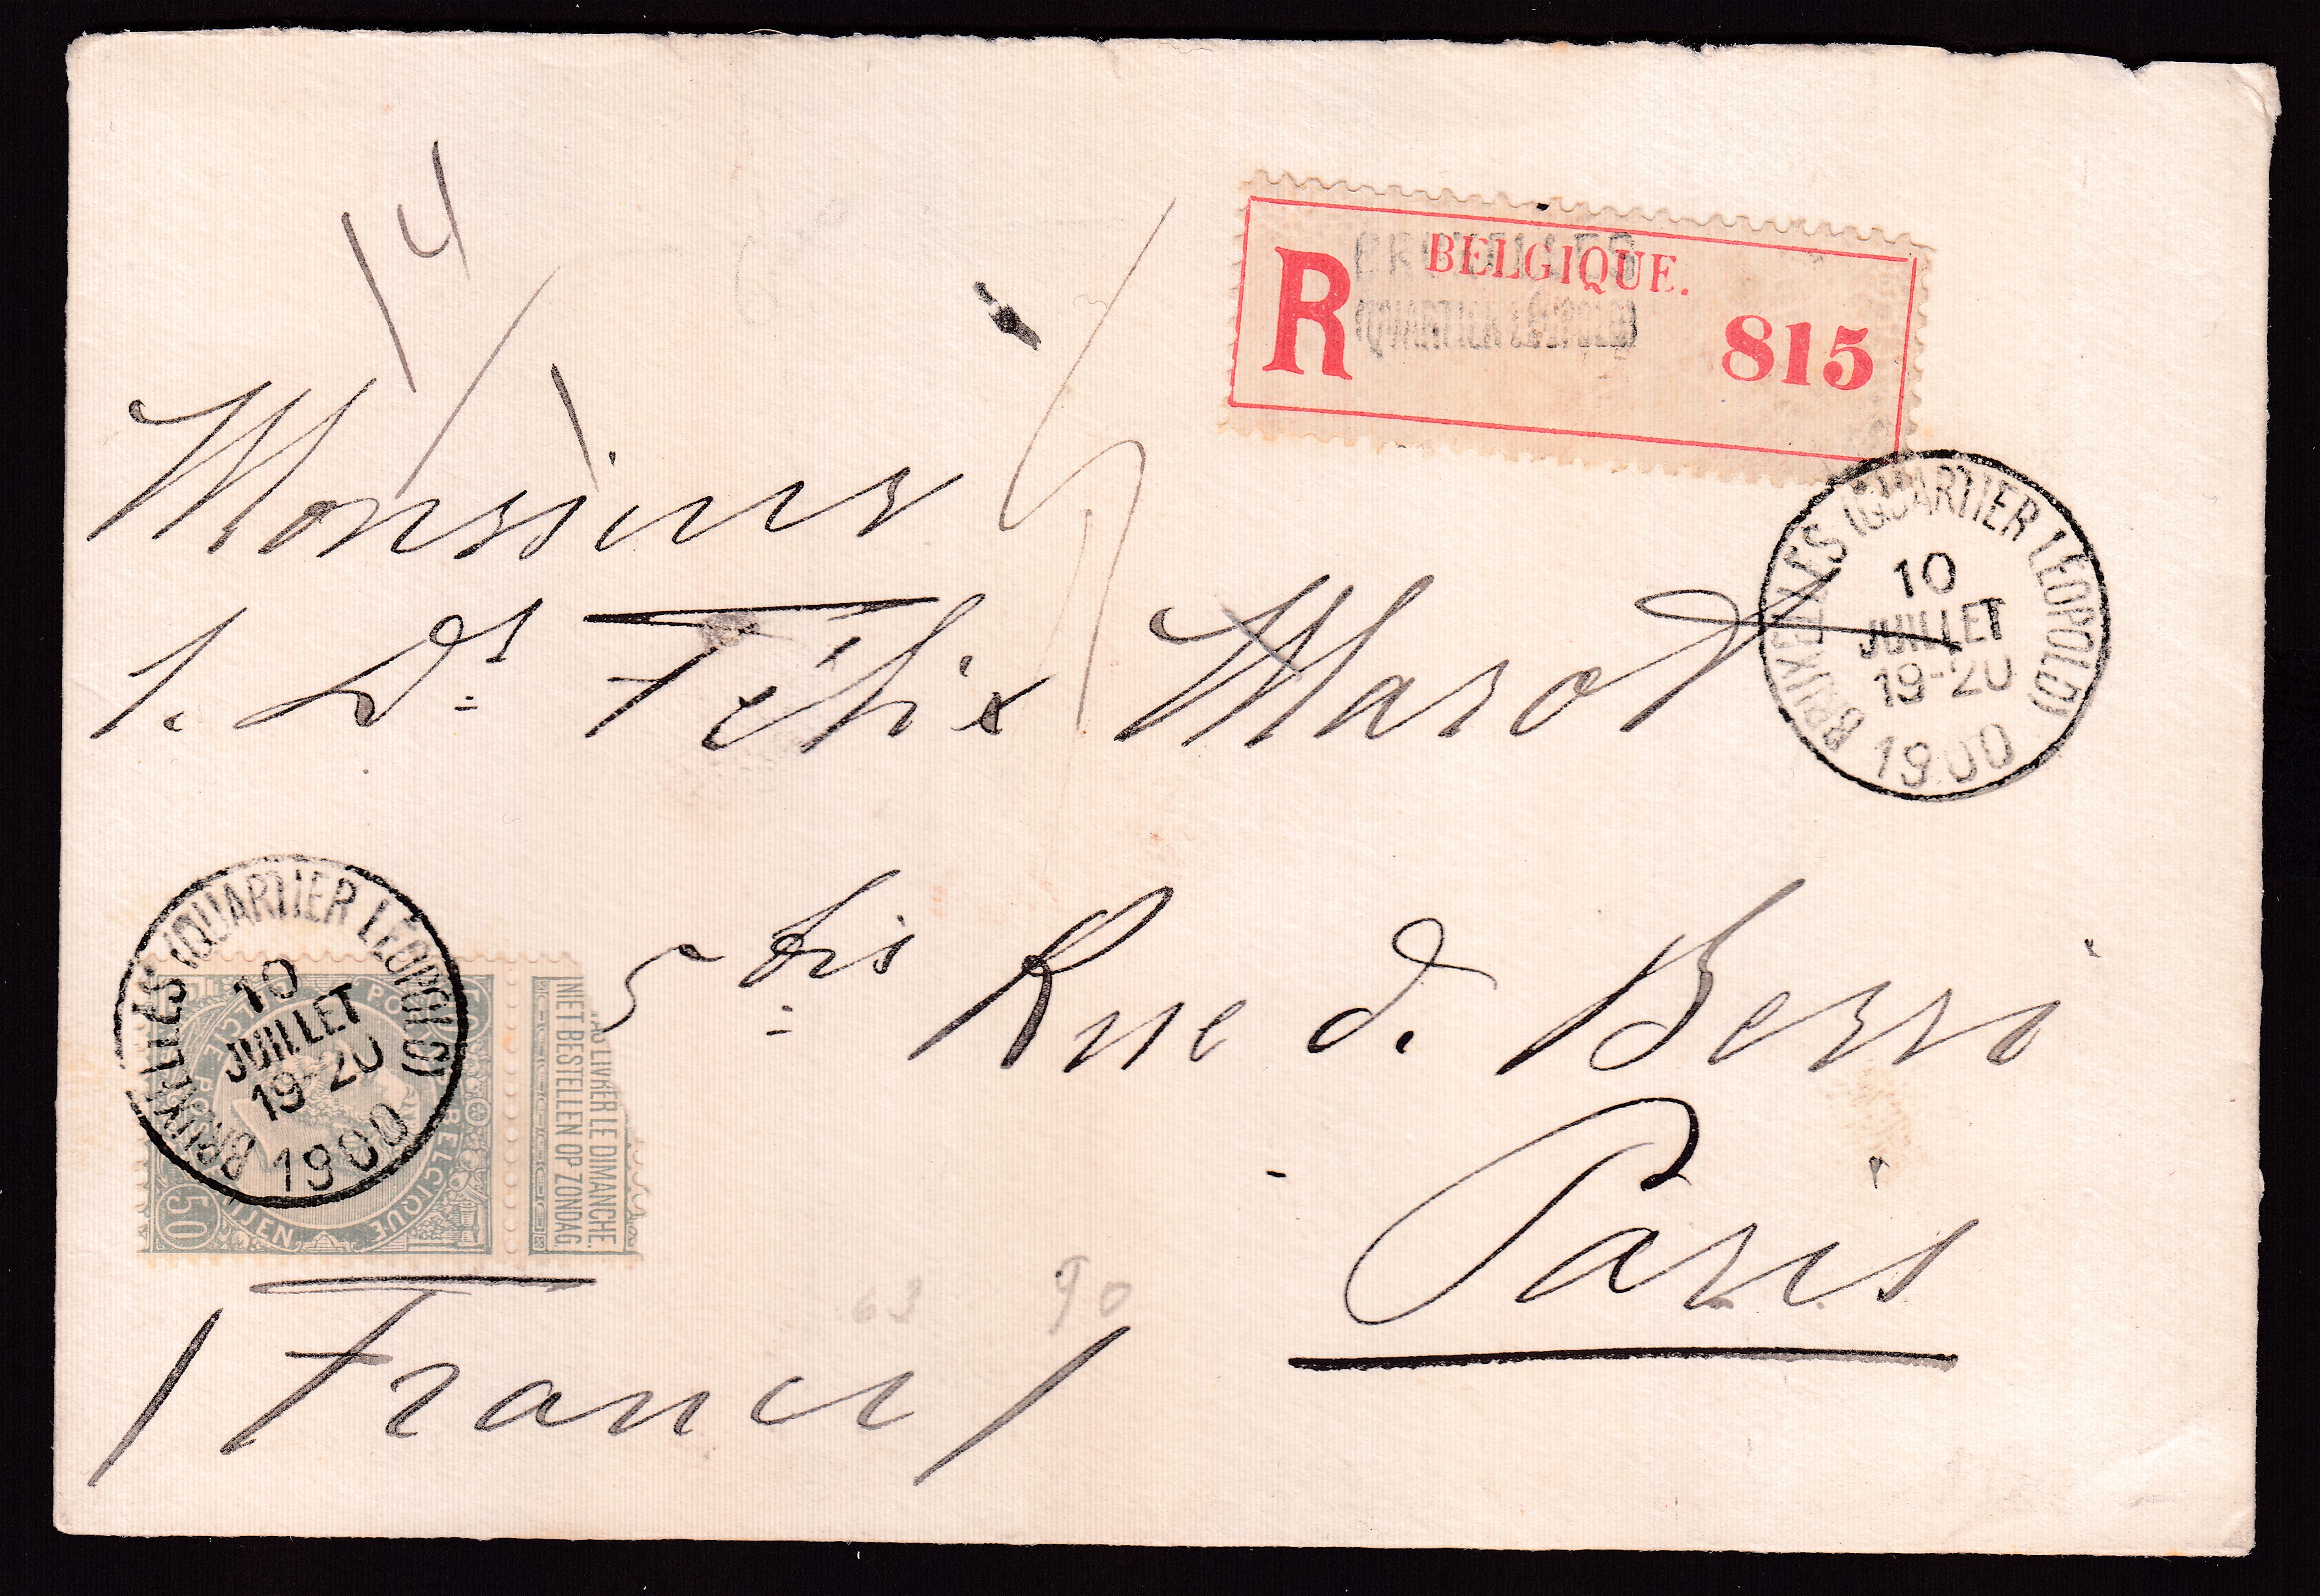 14
BELGIQUE.
BRUXELLES
(QUARTIER LÉOPOLD)
R 815
Monsieur
l. Dr Félix Marot
BRUXELLES (QUARTIER LÉOPOLD)
10
JUILLET
19-20
1900
5 bis Rue de Berri
Paris
BRUXELLES (QUARTIER LÉOPOLD)
10
JUILLET
19-20
1900
BELGIQUE
50
PAS LIVRER LE DIMANCHE.
NIET BESTELLEN OP ZONDAG
63 90
(France)